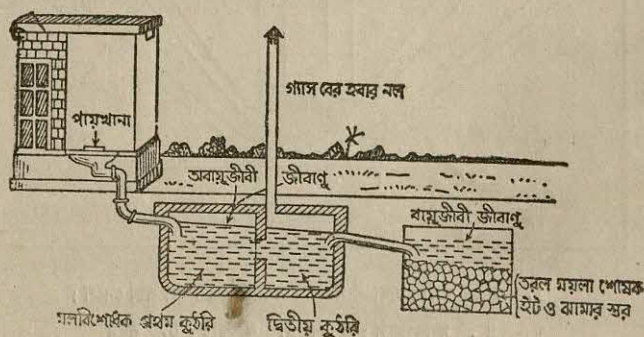 গ্যাস বের হবার নল
পায়খানা
অবায়ুজীবী জীবাণু
বায়ুজীবী জীবাণু
তরল ময়লা শোষক
ইট ও ঝামার স্তর
মলবিশোধক প্রথম কুঠরি
দ্বিতীয় কুঠরি